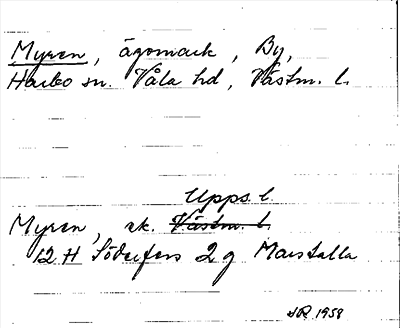 Myren, ägomark, By,
Harbo sn. Våla hd, Västm. l.
Upps. l.
Myren, ek. Västm. l.
12 H Söderfors 2 g
JR. 1958